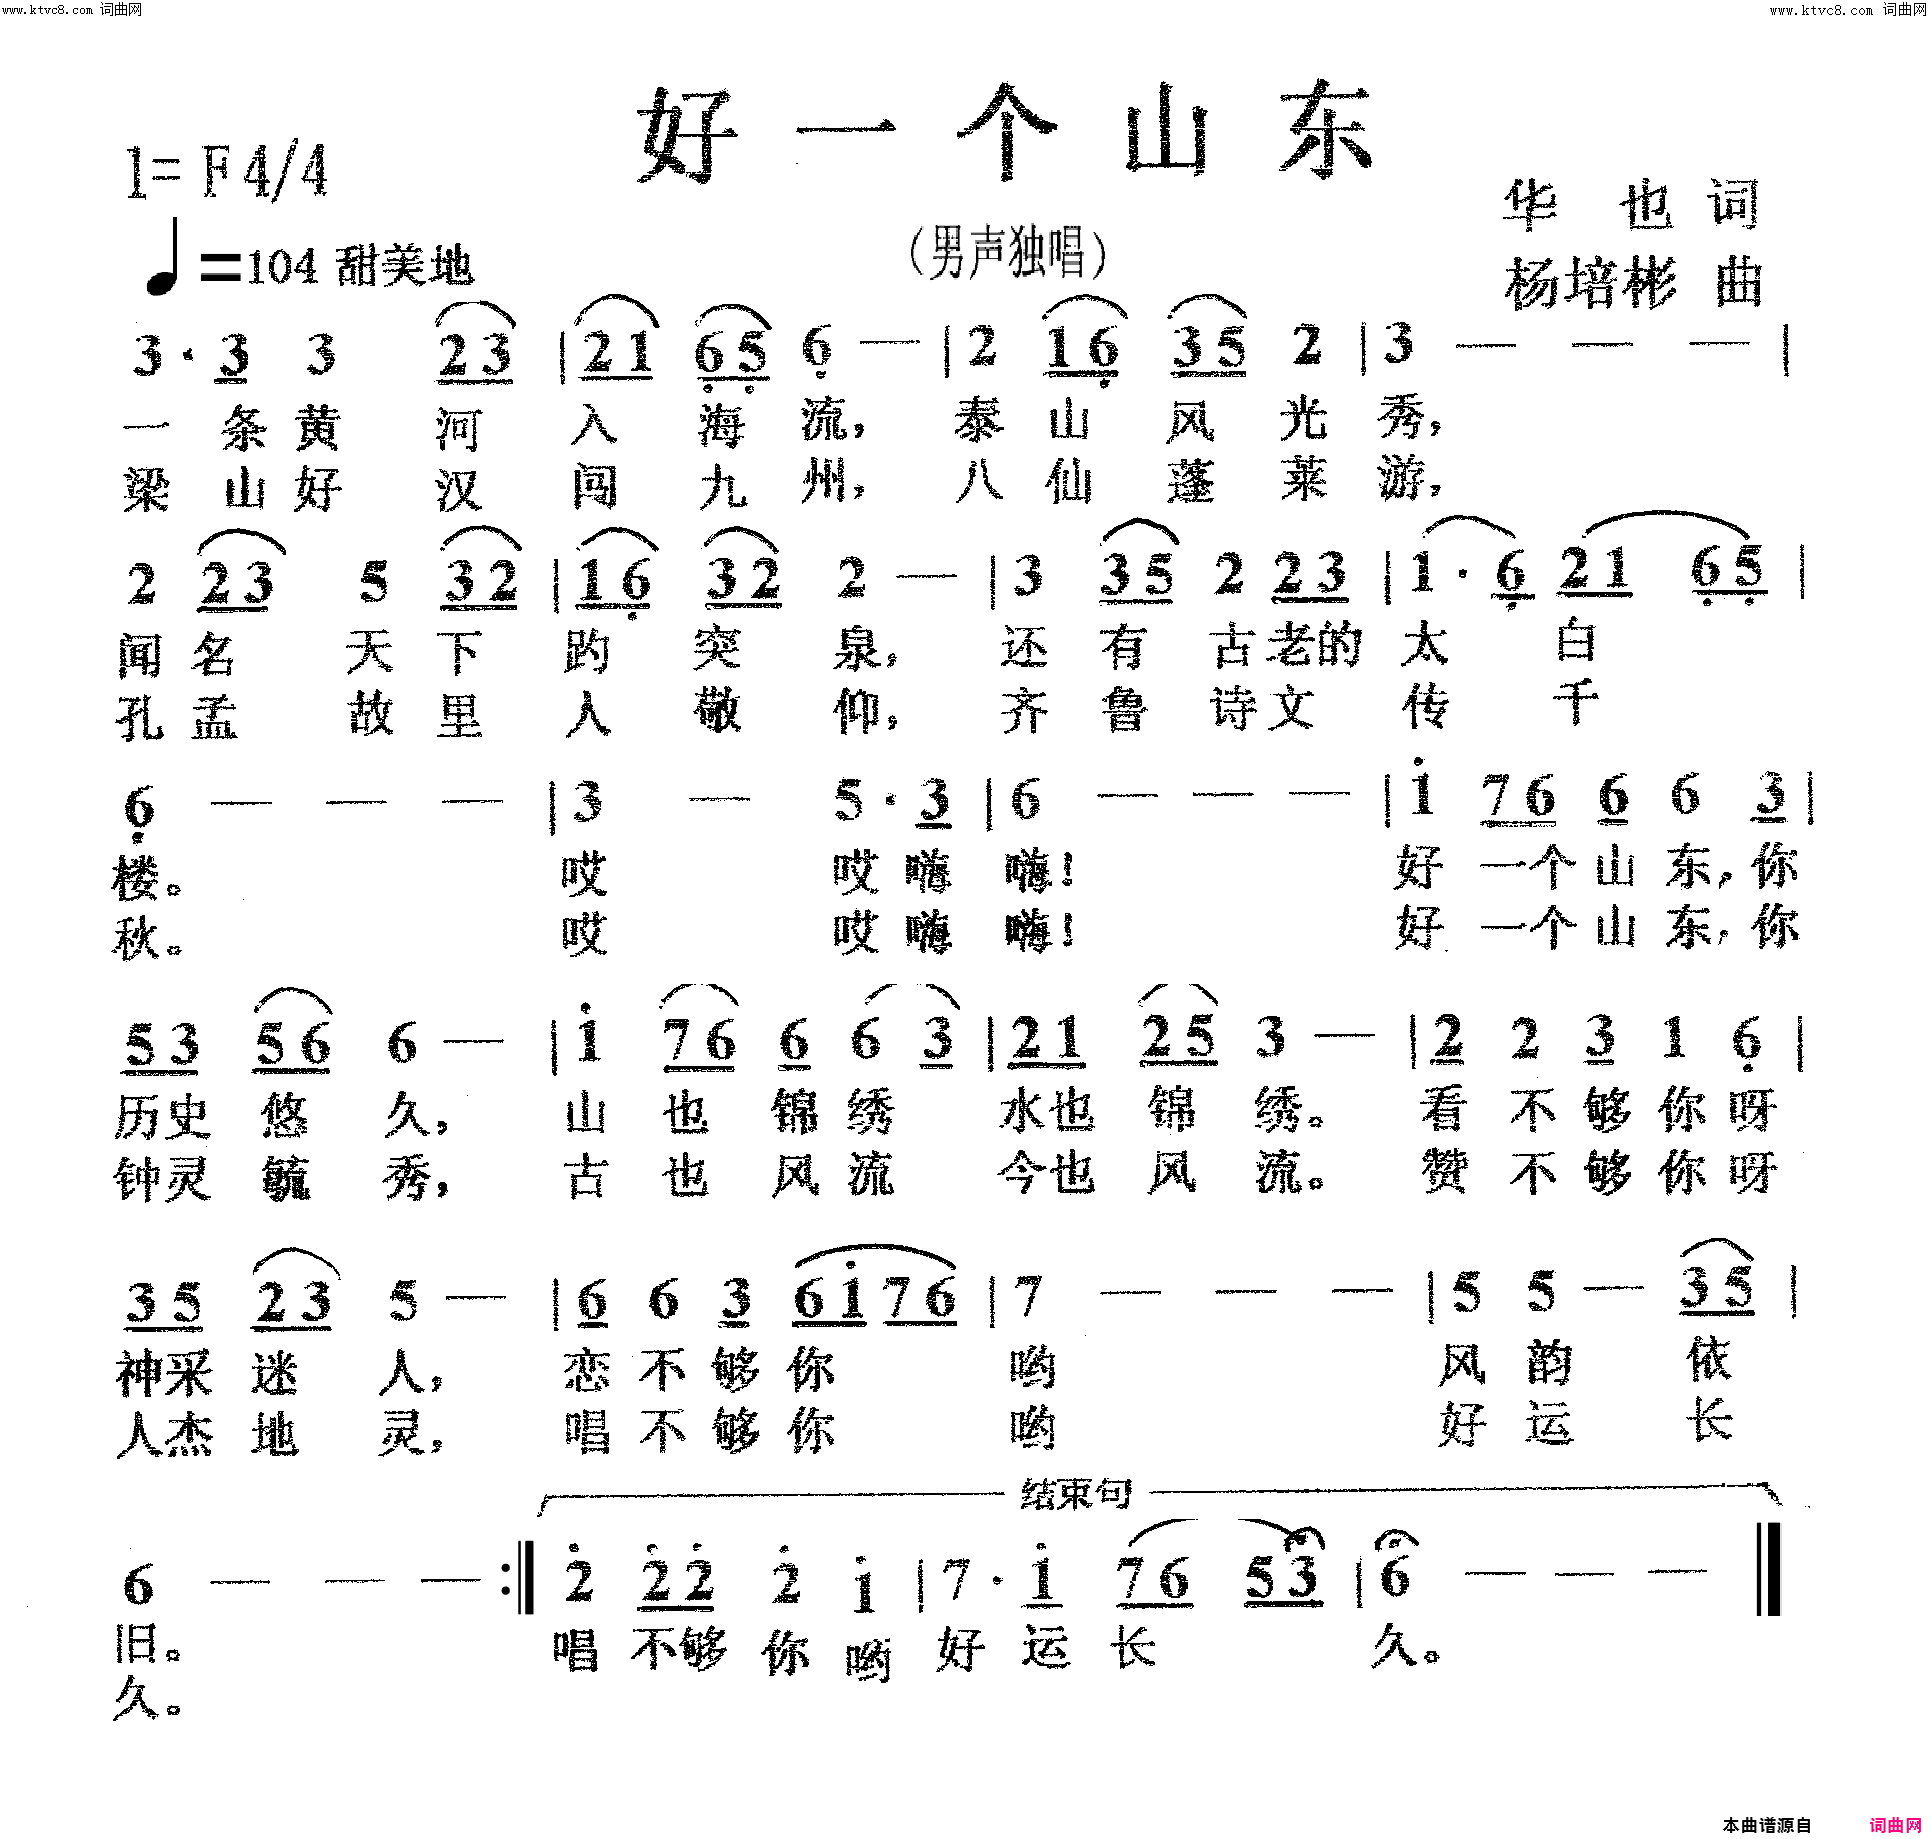 www.ktvc8.com 词曲网 www.ktvc8.com 词曲网
好一个山东
1= F 4/4
华 也 词
(男声独唱)
♩=104 甜美地
杨培彬 曲
3 · 3 3 2 3 | 2 1 6 5 6 — | 2 1 6 3 5 2 | 3 — — — |
一 条 黄 河 入 海 流, 泰 山 风 光 秀,
梁 山 好 汉 闯 九 州, 八 仙 蓬 莱 游,
2 2 3 5 3 2 | 1 6 3 2 2 — | 3 3 5 2 2 3 | 1 · 6 2 1 6 5 |
闻 名 天 下 趵 突 泉, 还 有 古 老 的 太 白
孔 孟 故 里 人 敬 仰, 齐 鲁 诗 文 传 千
6 — — — | 3 — 5 · 3 | 6 — — — | 1 7 6 6 6 3 |
楼。 哎 哎 嗨 嗨! 好 一 个 山 东, 你
秋。 哎 哎 嗨 嗨! 好 一 个 山 东, 你
5 3 5 6 6 — | 1 7 6 6 6 3 | 2 1 2 5 3 — | 2 2 3 1 6 |
历 史 悠 久, 山 也 锦 绣 水 也 锦 绣。 看 不 够 你 呀
钟 灵 毓 秀, 古 也 风 流 今 也 风 流。 赞 不 够 你 呀
3 5 2 3 5 — | 6 6 3 6 1 7 6 | 7 — — — | 5 5 — 3 5 |
神 采 迷 人, 恋 不 够 你 哟 风 韵 依
人 杰 地 灵, 唱 不 够 你 哟 好 运 长
结束句
6 — — — :‖ 2 2 2 2 1 | 7 · 1 7 6 5 3 | 6 — — — ‖
旧。 唱 不 够 你 哟 好 运 长 久。
久。
本曲谱源自 词曲网